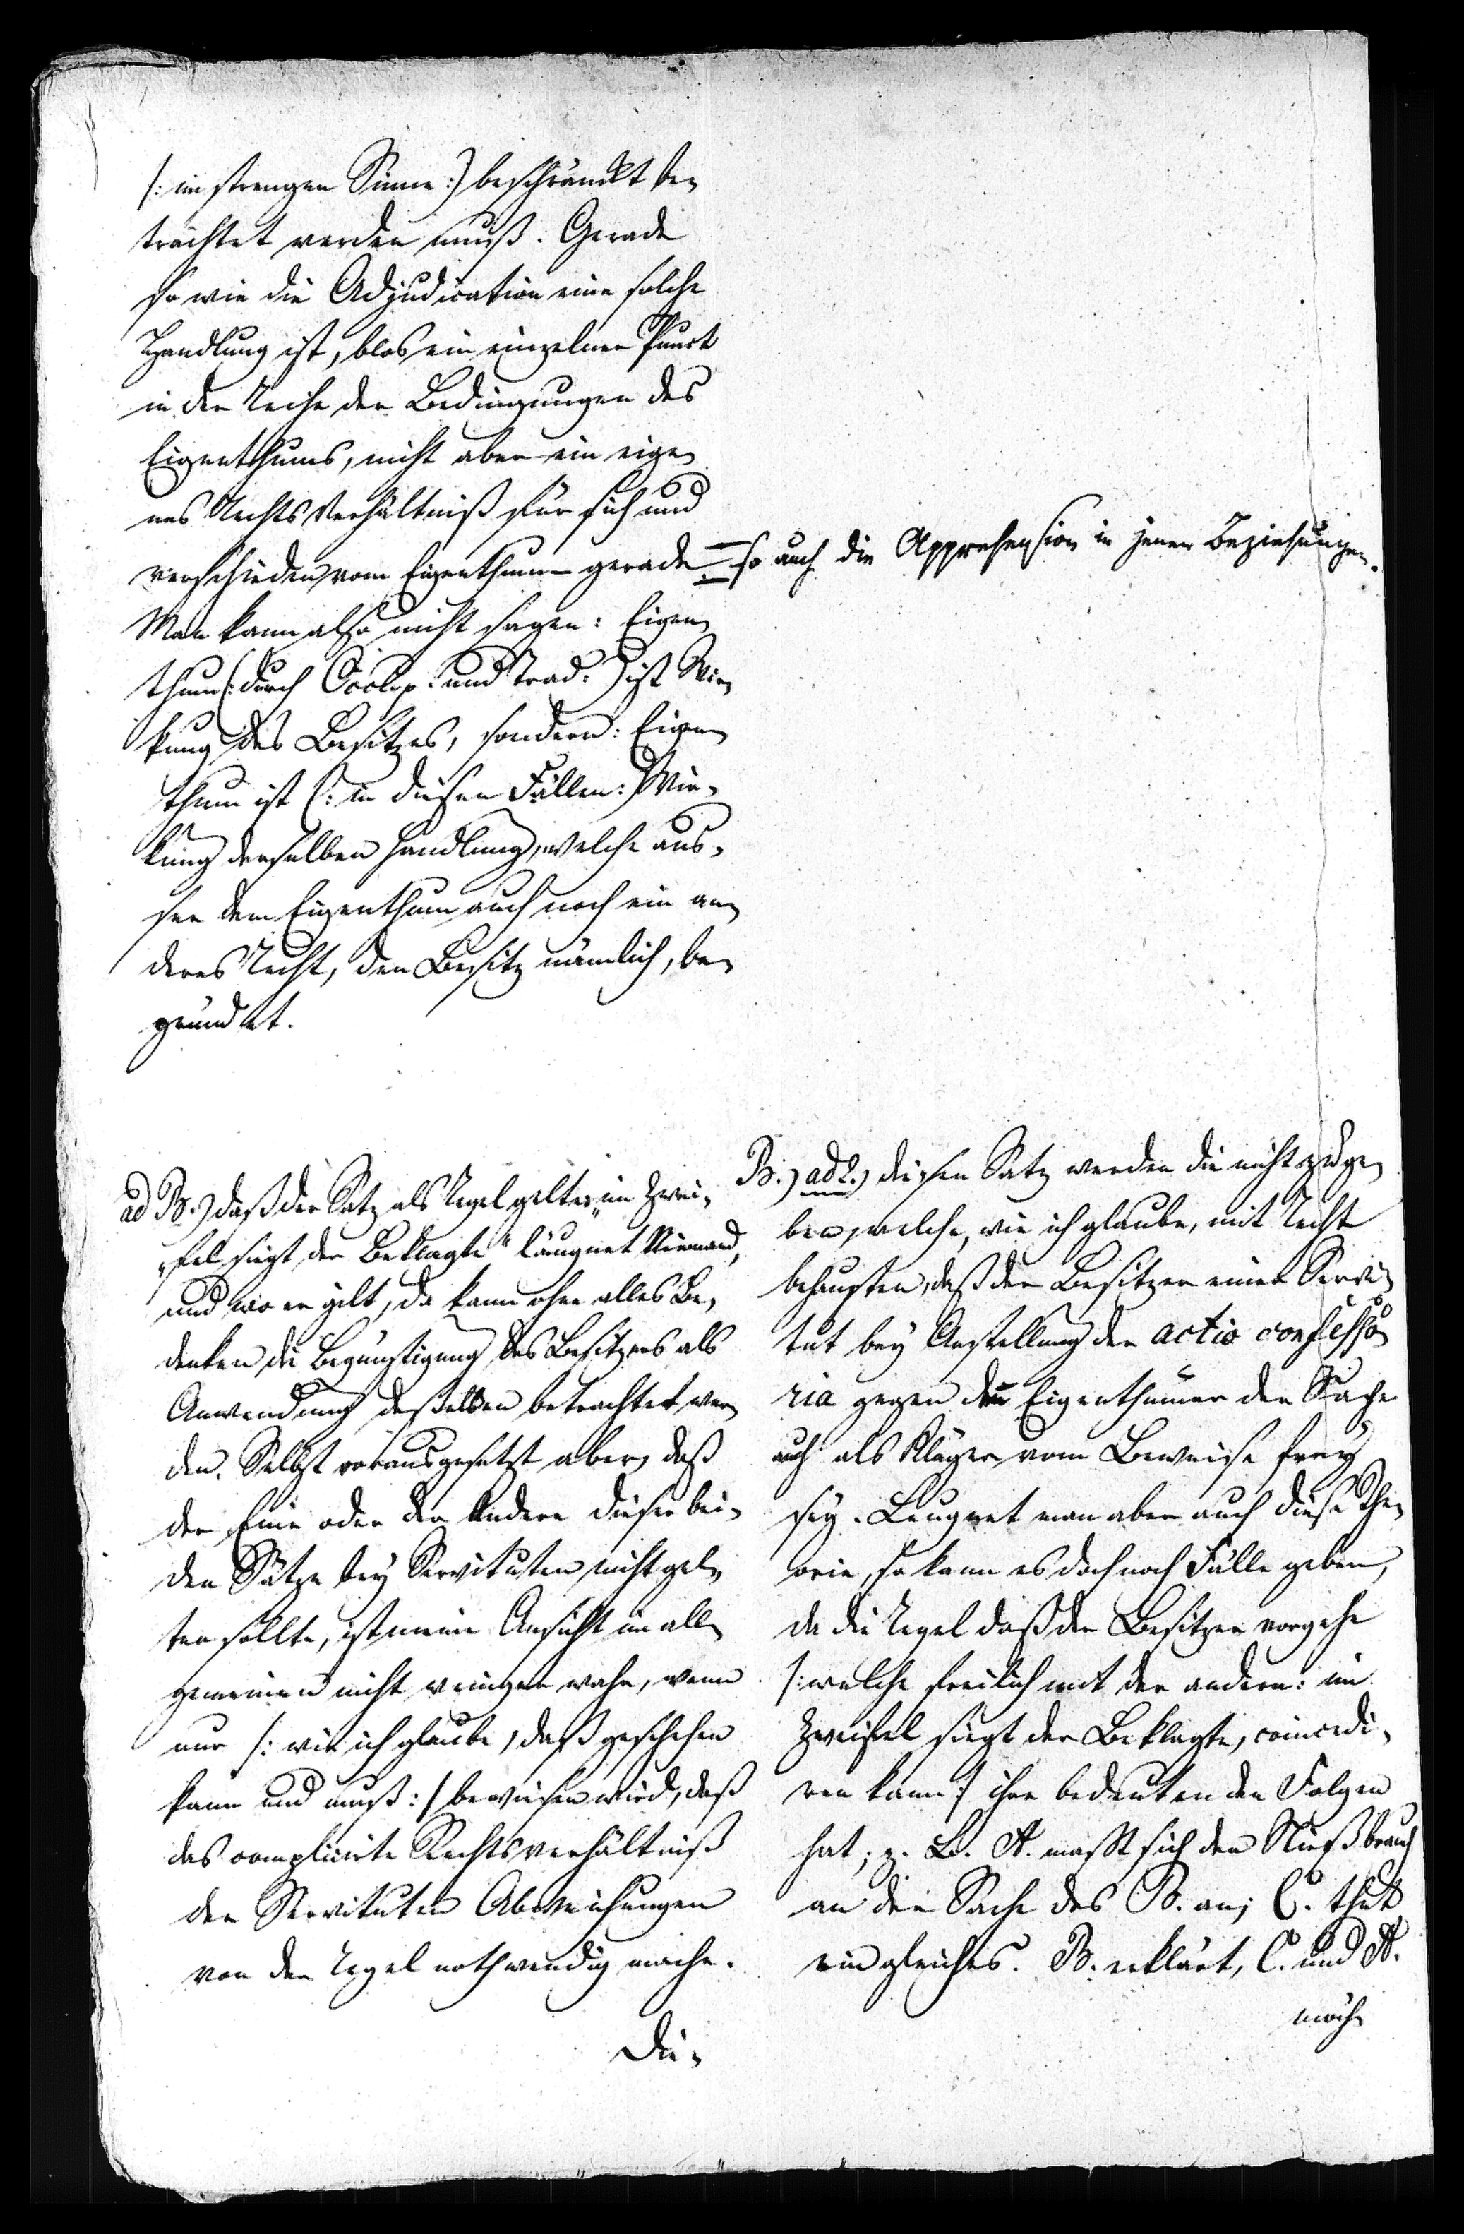 (: im strengen Sinne :) beschränkt be-
trachtet werden muß. Gerade
so wie die Adjudication eine solche
Handlung ist, blos ein einzelner Punct
in der Reihe der Bedingungen des
Eigenthums, nicht aber ein eige-
nes Rechts Verhältniß für sich und
verschieden vom Eigenthum gerade
so auch die Apprehension in jenen Beziehungen.
Man kann also nicht sagen: Eigen-
thum (: durch Occup: und Trad: ) ist Wir-
kung des Besitzes, sondern: Eigen-
thum ist (: in diesen Fällen :) Wir-
kung derselben Handlung, welche aus-
ser dem Eigenthum auch noch ein an-
deres Recht, den Besitz nämlich, be-
gründet.
ad B.) daß der Satz als Regel gelte: "im Zwei-
"fel siegt der Beklagte" läugnet Niemand,
und wo er gilt, da kann ohne alles Be-
denken die Begünstigung des Besitzers als
Anwendung deßelben betrachtet wer-
den. Selbst vorausgesetzt aber, daß
der Eine oder der Andere dieser bei-
den Sätze bey Servituten nicht gel-
ten sollte, ist meine Ansicht im all-
gemeinen nicht weniger wahr, wenn
nur (: wie ich glaube, daß geschehen
kann und muß :) bewiesen wird, daß
das complicirte Rechtsverhältniß
der Servituten Abweichungen
von der Regel nothwendig mache.
Die-
B.) ad 2.) diesen Satz werden die nicht zuge-
ben, welche, wie ich glaube, mit Recht
behaupten, daß der Besitzer einer Servi-
tut bey Anstellung der actio confesso-
ria gegen den Eigenthümer der Sache
auch als Kläger vom Beweise frey
sey. Leugnet man aber auch diese The-
orie, so kann es doch noch Fälle geben,
da die Regel daß der Besitzer vorgehe
(: welche freilich mit der andern: im
Zweifel siegt der Beklagte, coincidi-
ren kann :) ihre bedeutenden Folgen
hat; z. B. A. maßt sich den Nießbrauch
an der Sache des B. an; C. thut
ein gleiches. B. erklärt, C. und A.
möch-